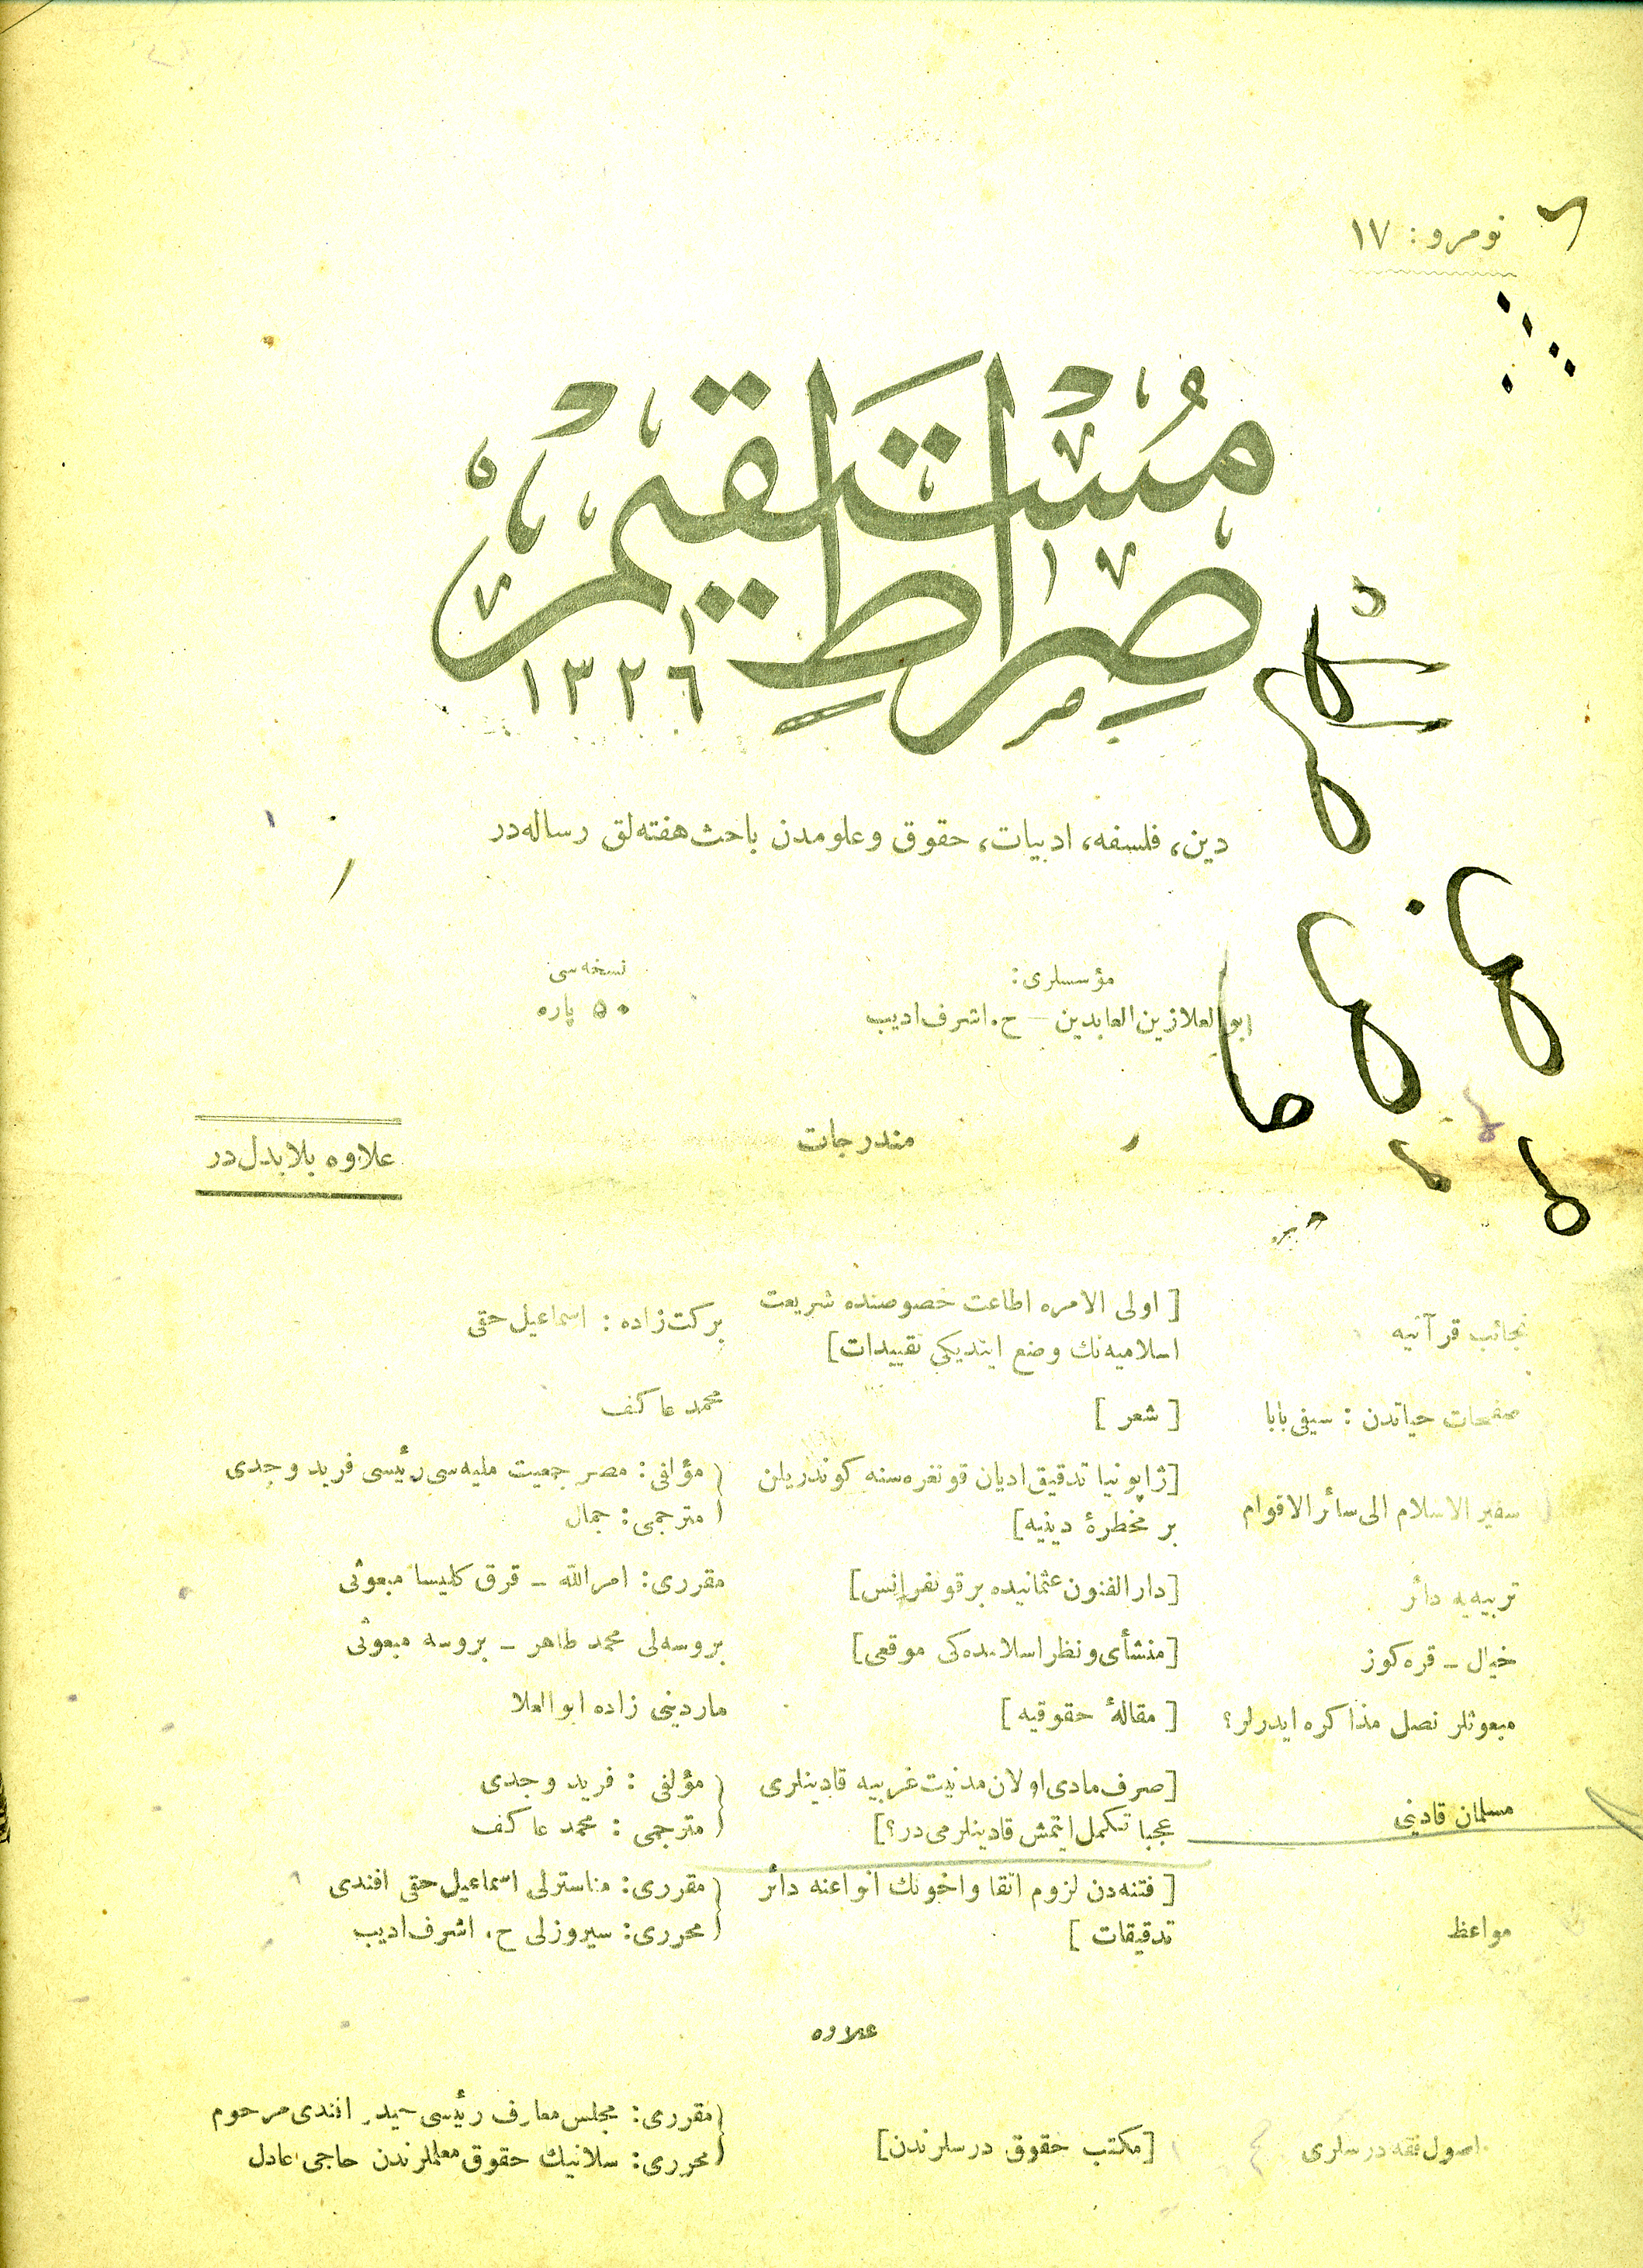 نومرو : ١٧
صراط مستقيم
١٣٢٦
دين، فلسفه، ادبيات، حقوق وعلومدن باحث هفته‌لق رساله‌در
مؤسسلرى :
ابوالعلا زين العابدين — ح. اشرف اديب
نسخه‌سى
٥٠ پاره
مندرجات
علاوه بلا بدل‌در
نجائب قرآنيه [ اولى الامره اطاعت خصوصنده شريعت اسلاميه‌نك وضع ايتديكى تقييدات] بركت‌زاده : اسماعيل حقى
صفحات حياتدن : سيفى بابا [ شعر ] محمد عاكف
سفير الاسلام الى سائر الاقوام [ژاپونيا تدقيق اديان قونغره‌سنه كوندريلن بر مخطرۀ دينيه] مؤلفى : مصر جمعيت مليه‌سى رئيسى فريد وجدى
مترجمى : جمال
تربيه‌يه دائر [دار الفنون عثمانيده بر قونفرانس] مقررى : امرالله – قرق كليسا مبعوثى
خيال – قره‌كوز [منشأى ونظر اسلامده‌كى موقعى] بروسه‌لى محمد طاهر – بروسه مبعوثى
مبعوثلر نصل مذاكره ايدرلر؟ [ مقالۀ حقوقيه ] ماردينى زاده ابوالعلا
مسلمان قادينى [صرف مادى اولان مدنيت غربيه قادينلرى عجبا تكمل ايتمش قادينلرمى‌در؟] مؤلفى : فريد وجدى
مترجمى : محمد عاكف
مواعظ [ فتنه‌دن لزوم اتقا واخونك انواعنه دائر تدقيقات ] مقررى : مناسترلى اسماعيل حقى افندى
محررى : سيروزلى ح. اشرف اديب
علاوه
اصول فقه درسلرى [مكتب حقوق درسلرندن] مقررى : مجلس معارف رئيسى حيدر افندى مرحوم
محررى : سلانيك حقوق معلملرندن حاجى عادل